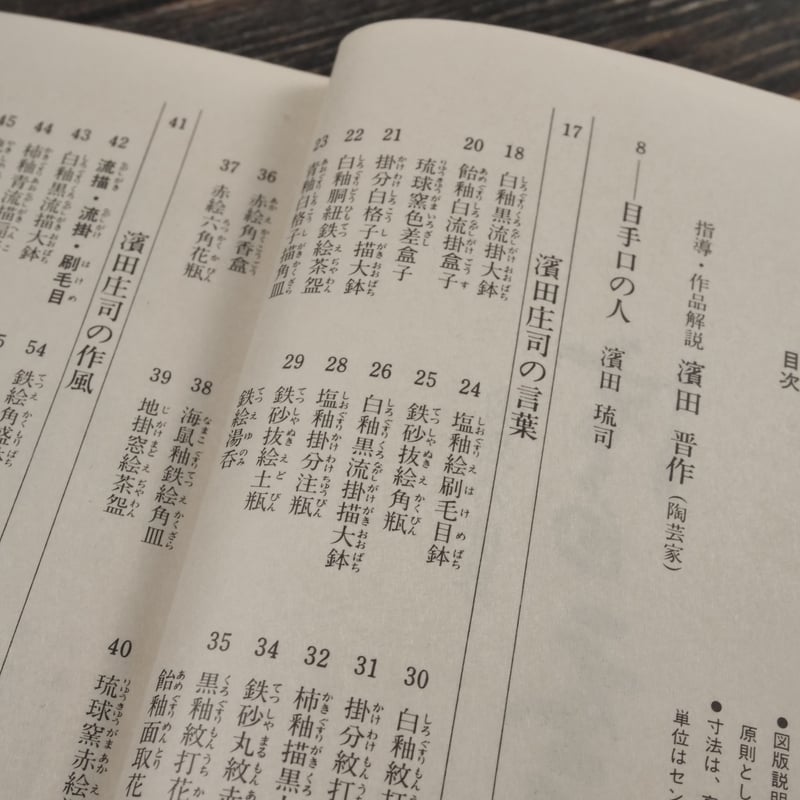 目次
指導・作品解説 濱田 晋作(陶芸家)
●図版説明
原則とし
●寸法は、
単位はセン
8 ── 目手口の人 濱田 琉司
17 濱田庄司の言葉
18 白釉黒流掛大鉢
20 飴釉白流掛盒子
琉球窯色差盒子
21 掛分白格子描大鉢
22 白釉胴紐鉄絵茶盌
23 青釉白格子描角皿
24 塩釉絵刷毛目鉢
25 鉄砂抜絵角瓶
26 白釉黒流掛描大鉢
28 塩釉掛分注瓶
29 鉄砂抜絵土瓶
鉄絵湯呑
30 白釉紋打
31 掛分紋打
32 柿釉描黒
34 鉄砂丸紋赤
35 黒釉紋打花
飴釉面取花
36 赤絵角香盒
37 赤絵六角花瓶
38 海鼠釉鉄絵角皿
39 地掛窓絵茶盌
40 琉球窯赤絵
41 濱田庄司の作風
42 流描・流掛・刷毛目
43 白釉黒流描大鉢
44 柿釉青流描
45
54 鉄絵角盛鉢